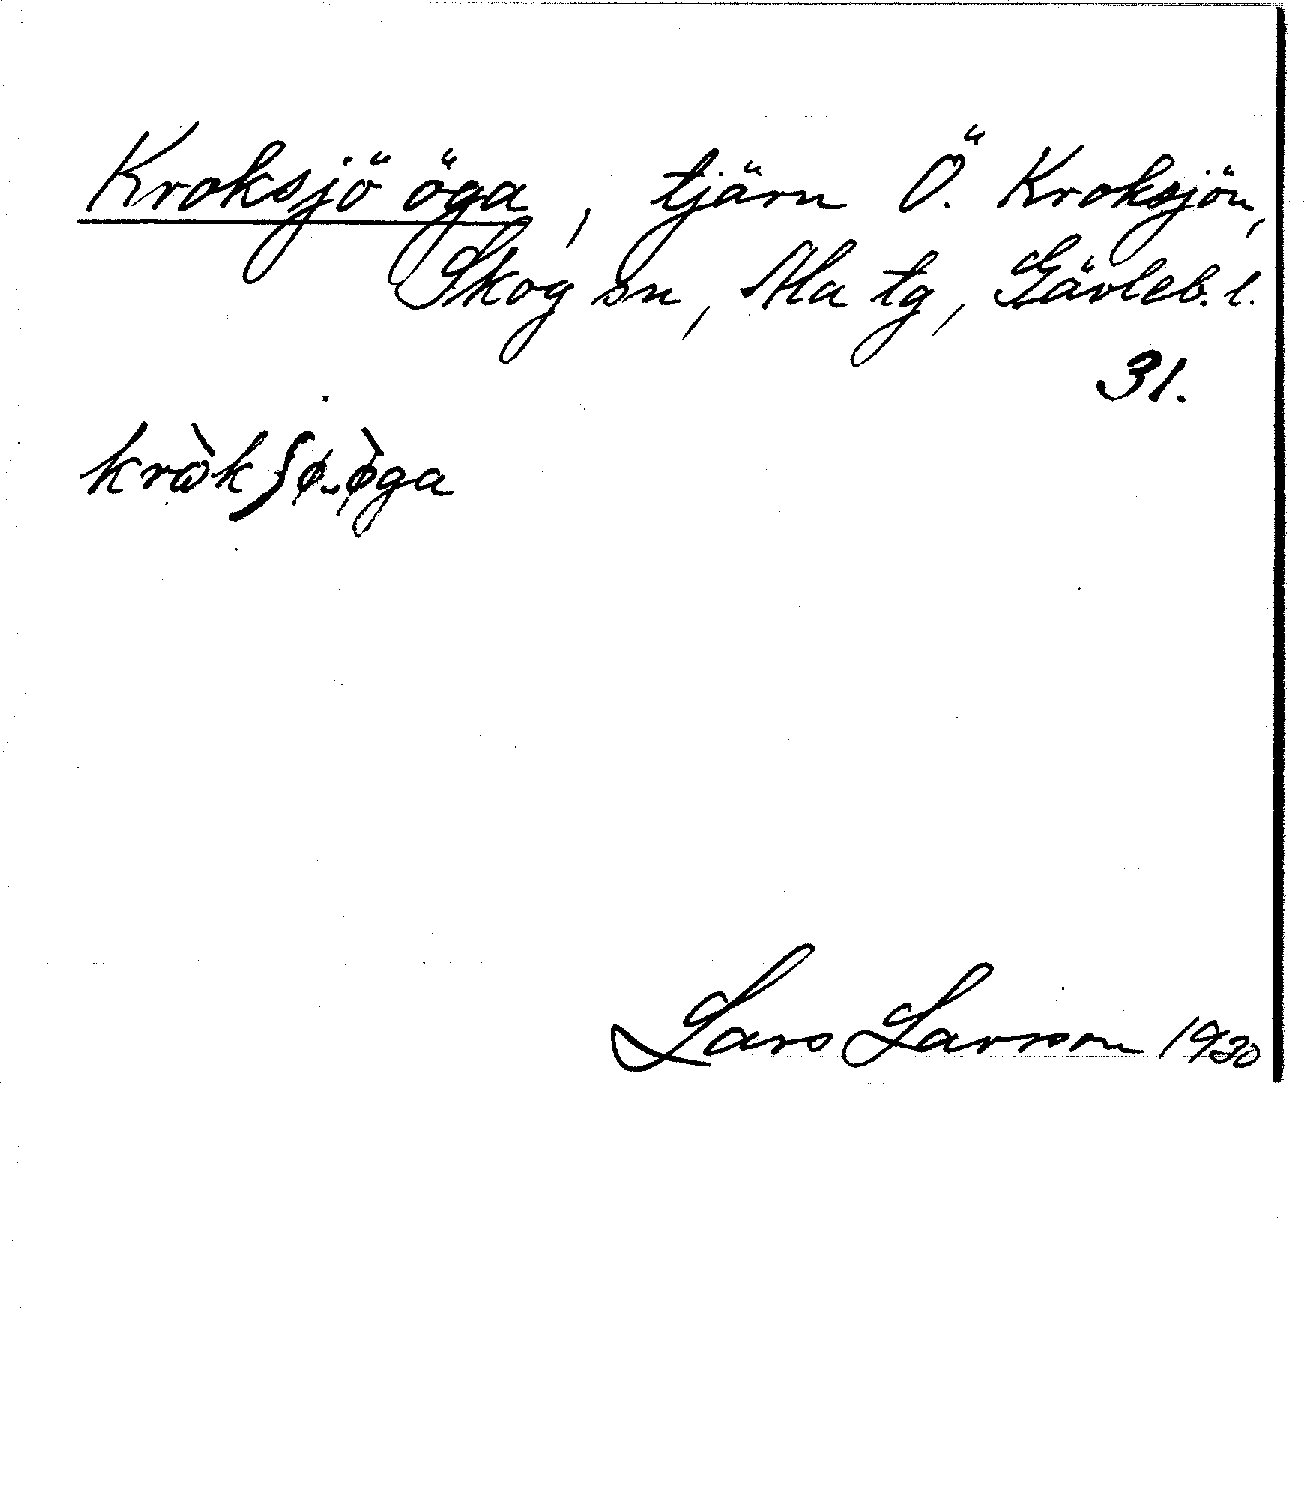 Kroksjö öga, tjärn Ö. Kroksjön,
Skog sn, Ala tg, Gävleb. l.
31.
kròkʃø.ø̀ga
Lars Larsson 1930